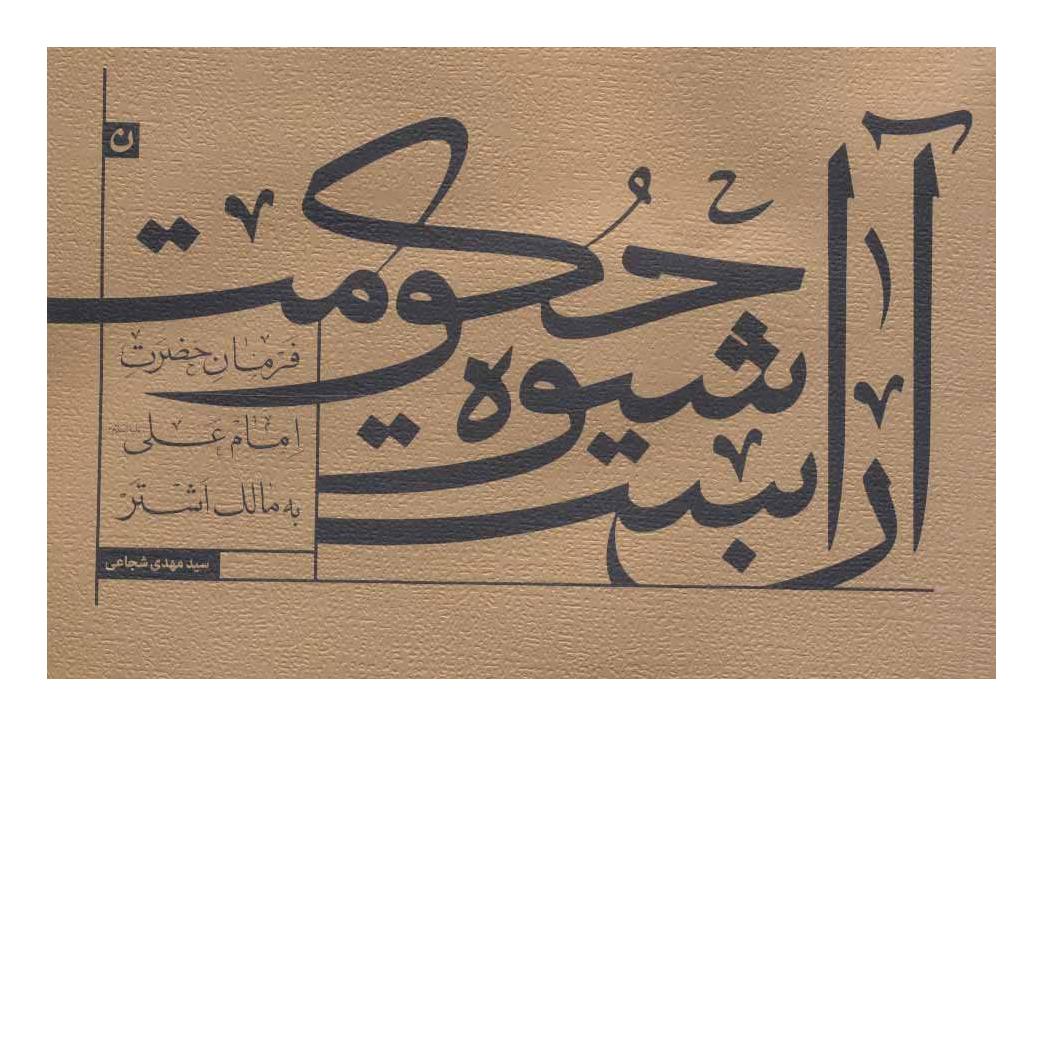 شیوه
حکومت
ن
فرمان حضرت
امام علی
به مالک اشتر
سید مهدی شجاعی